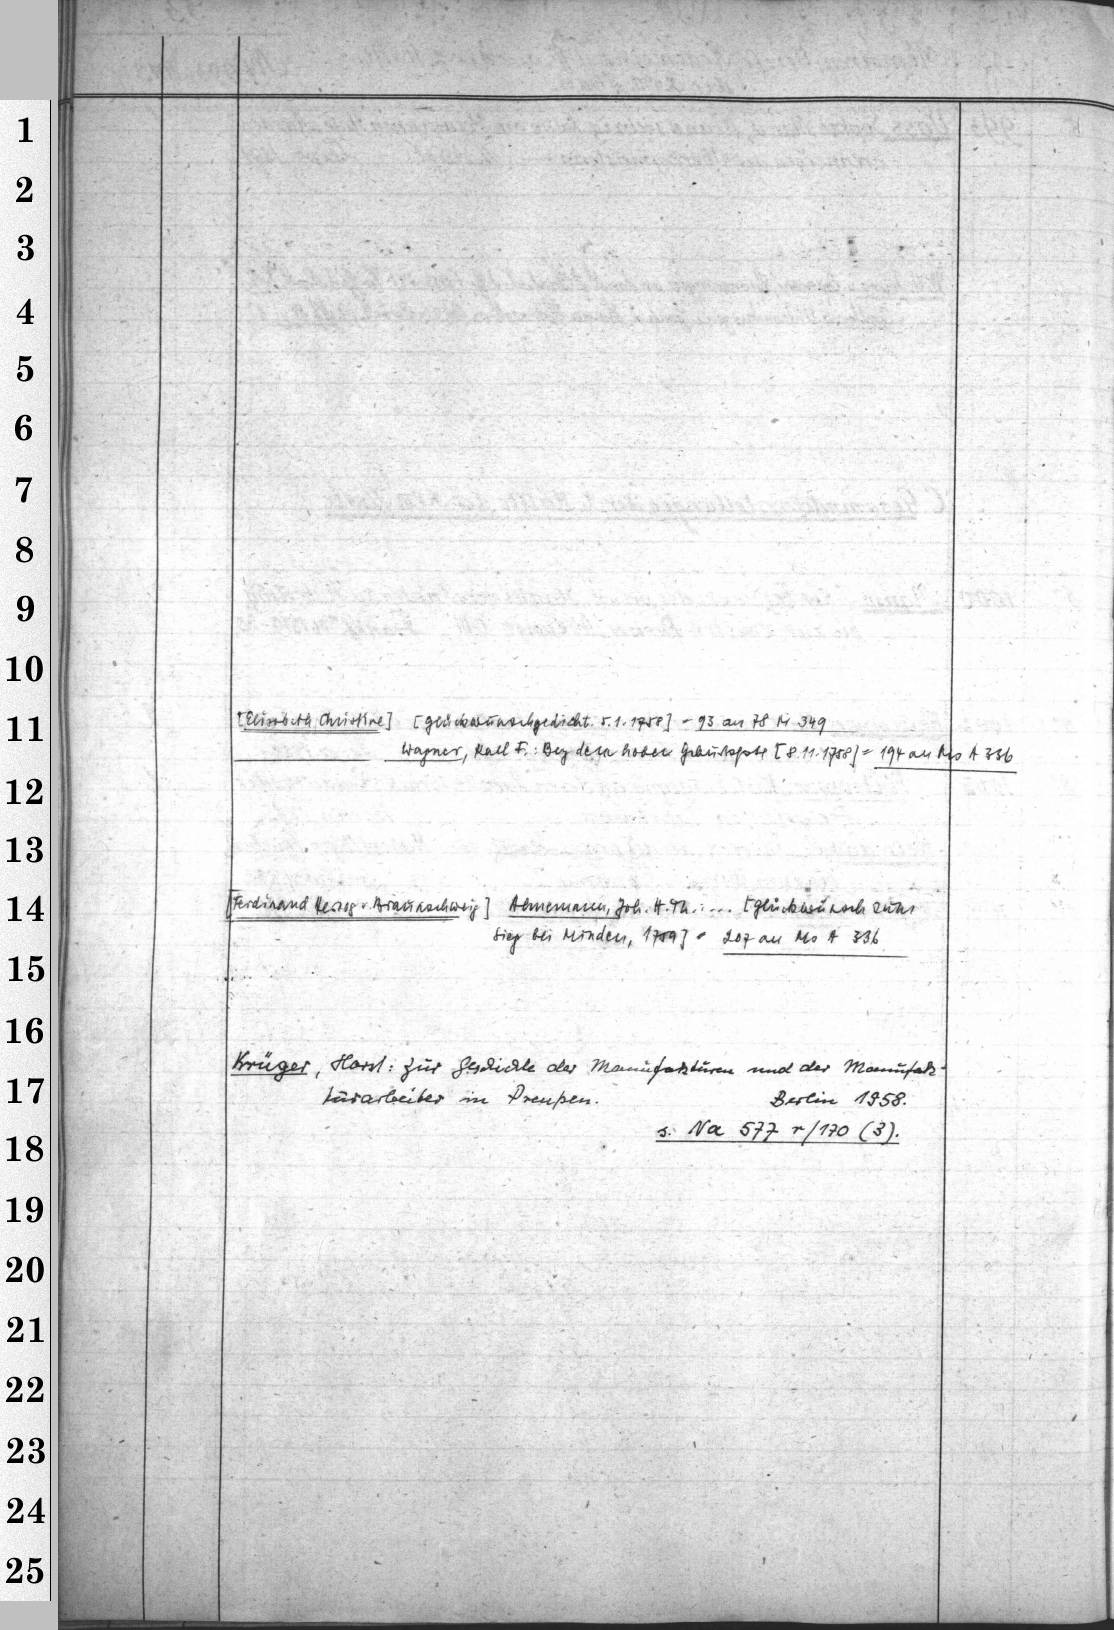 1
2
3
4
5
6
7
8
9
10
11
12
13
14
15
16
17
18
19
20
21
22
23
24
25
[Elisabeth Christine] [Glückwunschgedicht. 5.1.1758] = 93 an 78 M 349
Wagner, Karl F.: Bey dem hohen Geburtsfeste [8.11.1758] = 194 an Mo A 336
[Ferdinand Herzog v. Braunschweig] Joh. H. Th.: ... [Glückwunsch zum
Sieg bei Minden, 1759] = 207 an Mo A 336
Krüger, Horst: Zur Geschichte der Manufakturen und der Manufak-
turarbeiter in Preußen. Berlin 1958.
s. Na 577 r/170 (3).